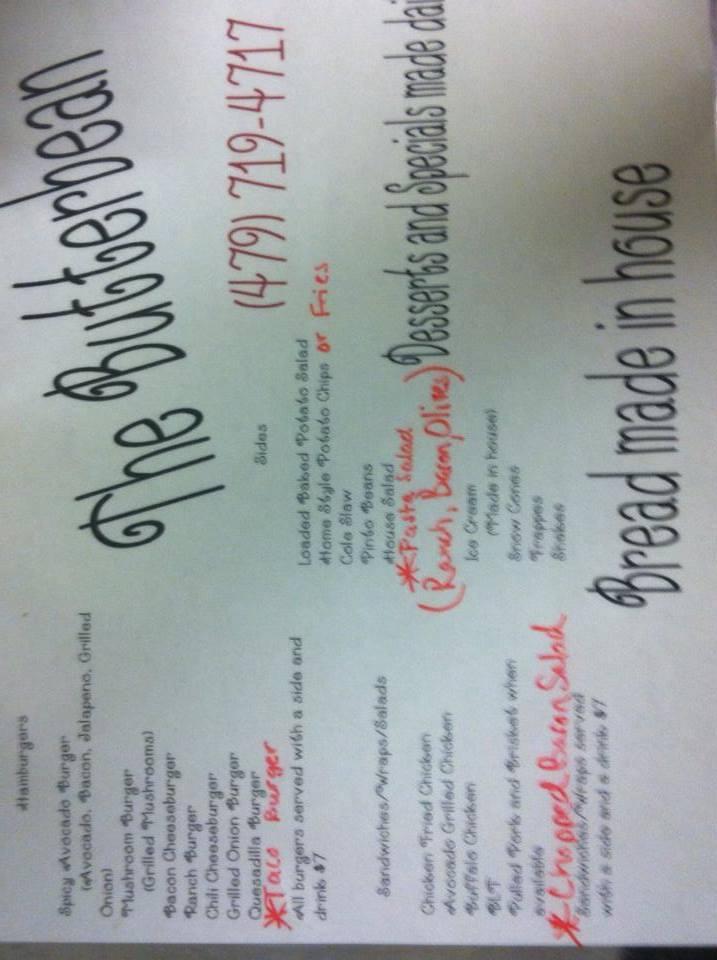 The Butterbean
(479) 719-4717
Hamburgers
Spicy Avocado Burger
(Avocado, Bacon, Jalapeno, Grilled
Onion)
Mushroom Burger
(Grilled Mushrooms)
Bacon Cheeseburger
Ranch Burger
Chili Cheeseburger
Grilled Onion Burger
Quesadilla Burger
*Taco Burger
All burgers served with a side and
drink $7
Sandwiches/Wraps/Salads
Chicken Fried Chicken
Avocado Grilled Chicken
Buffalo Chicken
BLT
Pulled Pork and Brisket when
available
*Chopped Bacon Salad
Sandwiches/Wraps served
with a side and a drink $7
Sides
Loaded Baked Potato Salad
Home Style Potato Chips or Fries
Cole Slaw
Pinto Beans
House Salad
*Pasta Salad
(Ranch, Bacon, Olives)
Desserts and Specials made dai
Ice Cream
(Made in house)
Snow Cones
Frappes
Shakes
Bread made in house